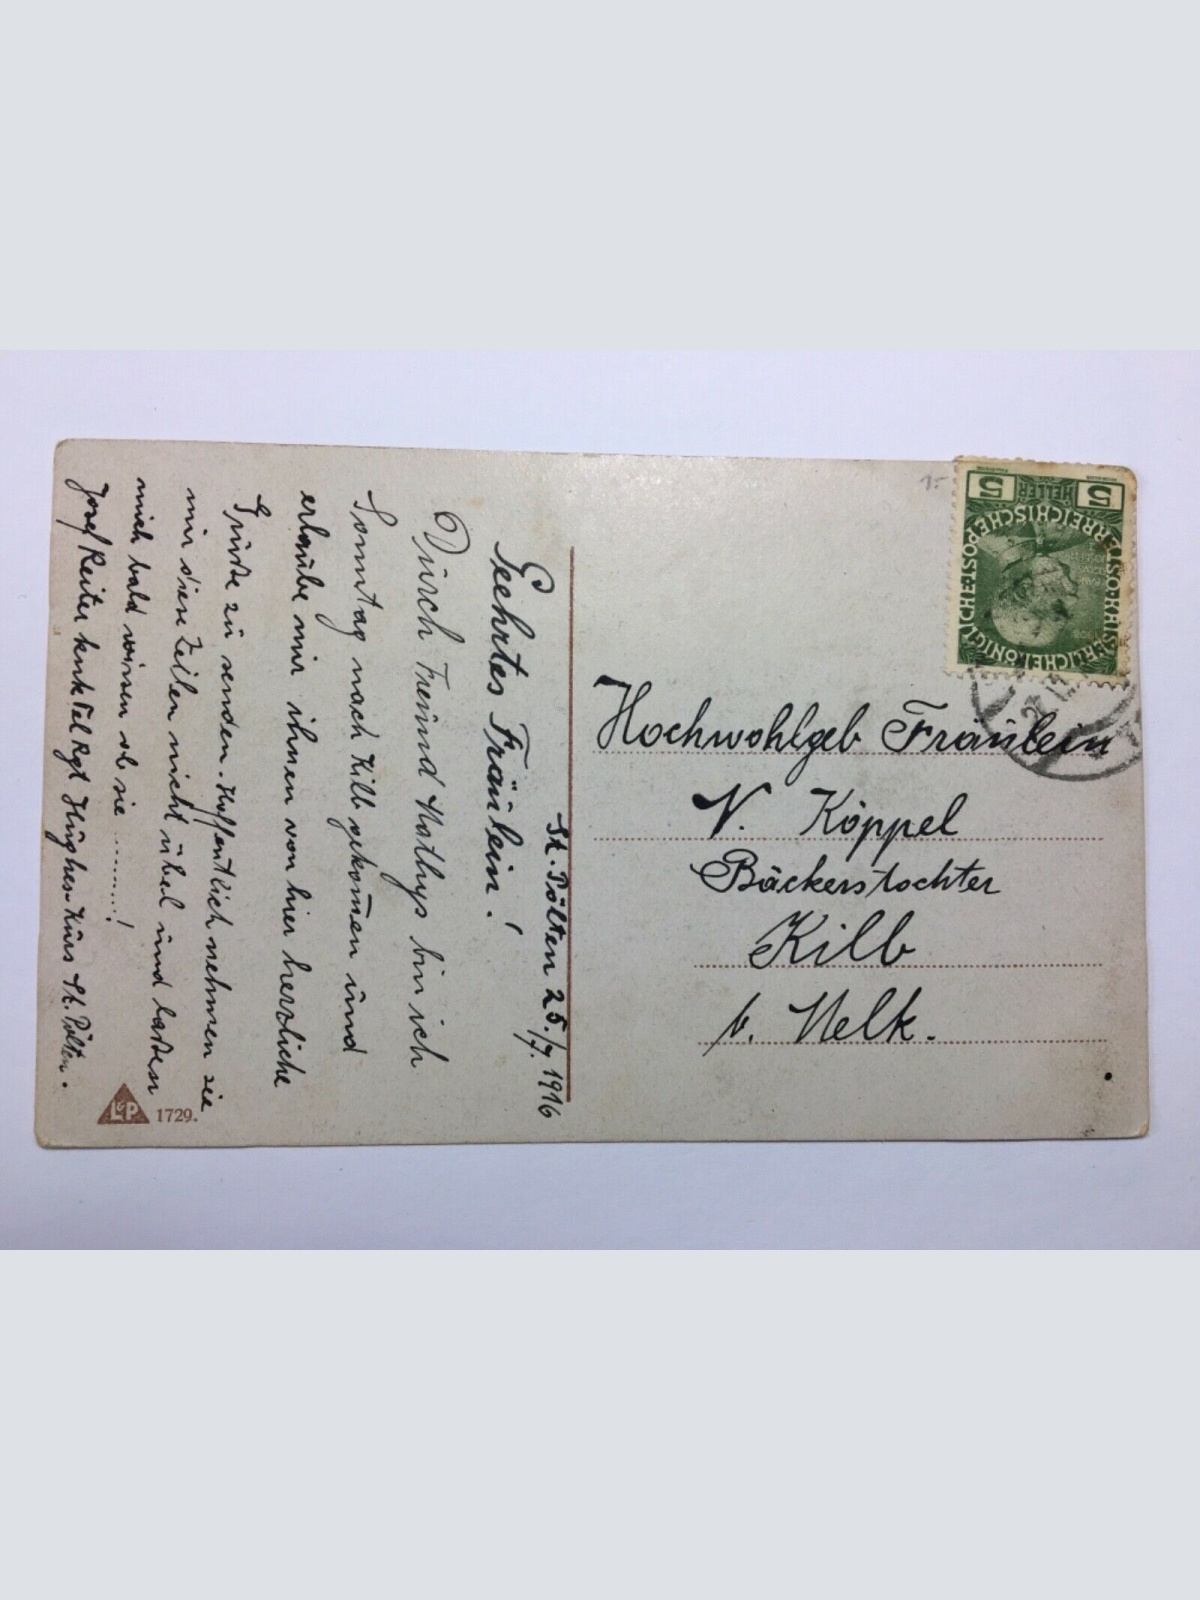 St. Pölten 25./7. 1916
Geehrtes Fräulein!
Durch Freund Mathys bin ich
Sonntag nach Kilb gekom̄en und
erlaube mir ihnen von hier herzliche
Grüße zu senden. Hoffentlich nehmen sie
mir diese Zeilen nicht übel und laßen
mich bald wissen ob sie ........!
Josef Reiter Tel Rgt Hughes Kurs St. Pölten.
L&P 1729.
Hochwohlgeb Fräulein
N. Köppel
Bäckerstochter
Kilb
b. Melk.
5 HELLER 5